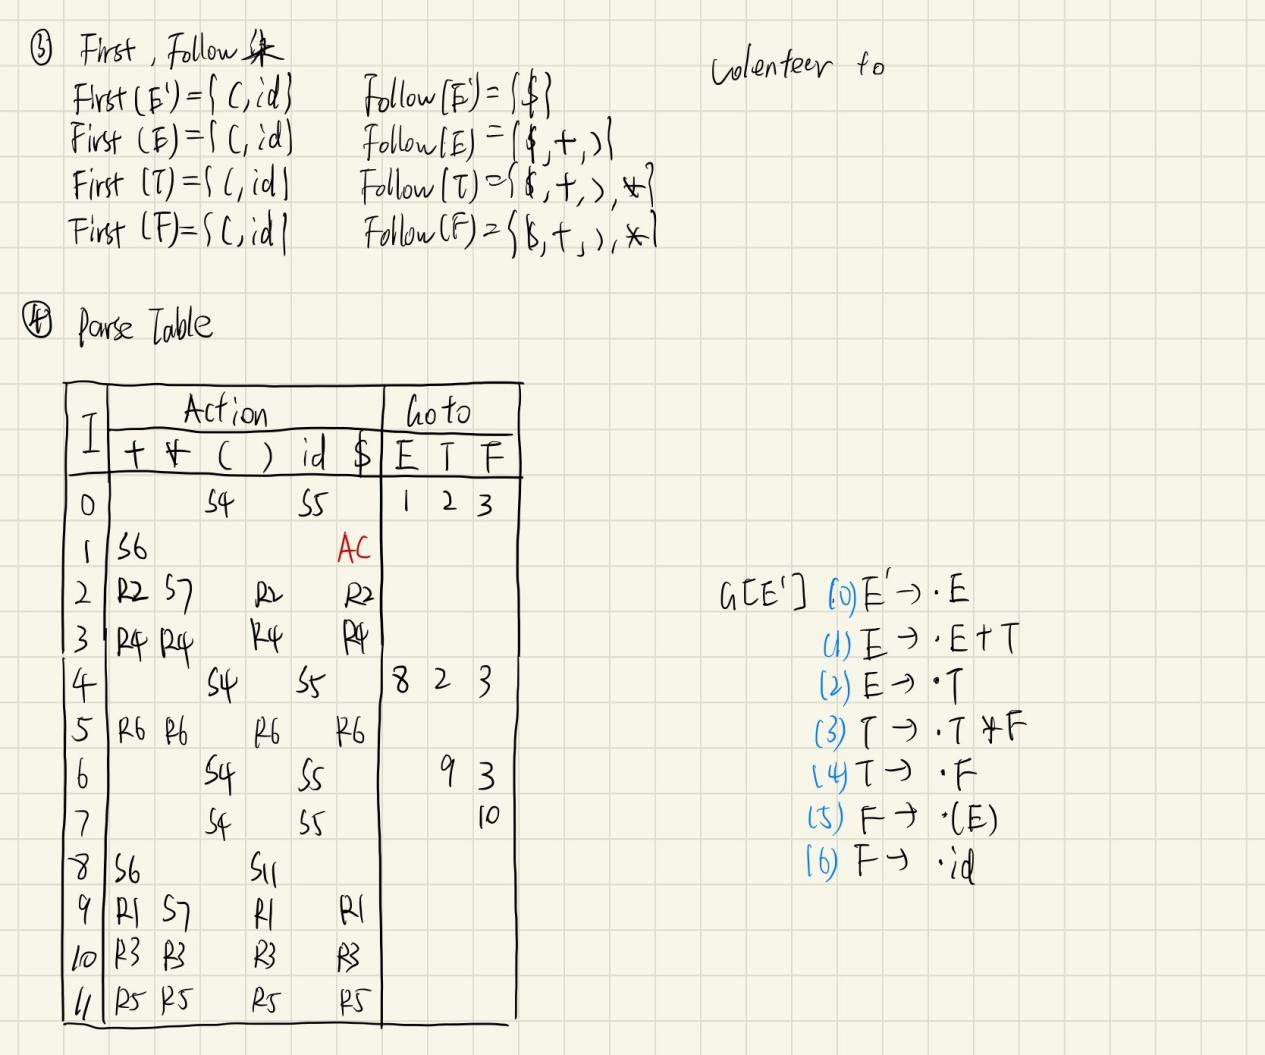 ③ First, Follow集
First(E')={(,id} Follow(E')={$}
First(E)={(,id} Follow(E)={$,+,)}
First(T)={(,id} Follow(T)={$,+,),*}
First(F)={(,id} Follow(F)={$,+,),*}
volenteer to
④ Parse Table
I Action Goto
+ * ( ) id $ E T F
0 S4 S5 1 2 3
1 S6 AC
2 R2 S7 R2 R2
3 R4 R4 R4 R4
4 S4 S5 8 2 3
5 R6 R6 R6 R6
6 S4 S5 9 3
7 S4 S5 10
8 S6 S11
9 R1 S7 R1 R1
10 R3 R3 R3 R3
11 R5 R5 R5 R5
G[E'] (0) E'→·E
(1) E→·E+T
(2) E→·T
(3) T→·T*F
(4) T→·F
(5) F→·(E)
(6) F→·id